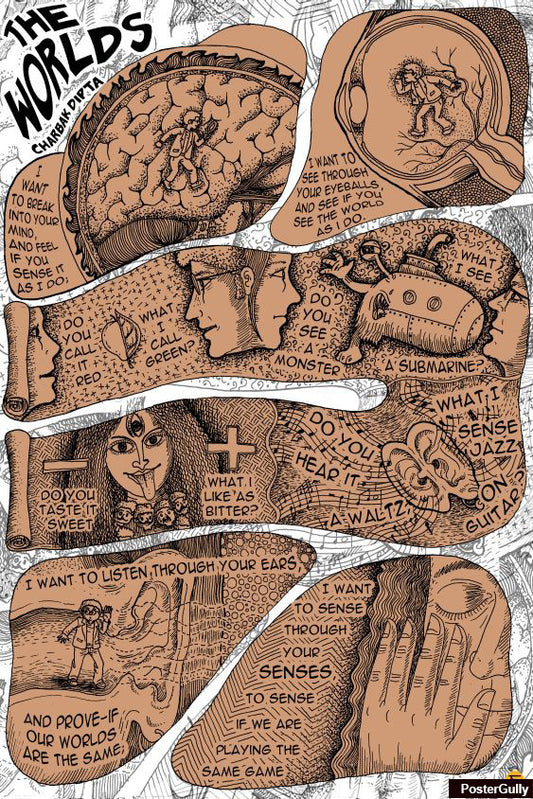 THE
WORLDS
CHARBAK DIPTA
I
WANT
TO BREAK
INTO YOUR
MIND,
AND FEEL
IF YOU
SENSE IT
AS I DO;
I WANT TO
SEE THROUGH
YOUR EYEBALLS,
AND SEE IF YOU
SEE THE WORLD
AS I DO.
DO
YOU
CALL
IT
RED
WHAT
I
CALL
GREEN?
DO
YOU
SEE
A
MONSTER
WHAT
I SEE
A SUBMARINE?
DO YOU
TASTE IT
SWEET
WHAT I
LIKE AS
BITTER?
DO YOU
HEAR IT
A WALTZ,
WHAT I
SENSE
JAZZ
ON
GUITAR?
I WANT TO LISTEN THROUGH YOUR EARS,
AND PROVE-IF
OUR WORLDS
ARE THE SAME;
I WANT
TO SENSE
THROUGH
YOUR
SENSES,
TO SENSE
IF WE ARE
PLAYING THE
SAME GAME
PosterGully